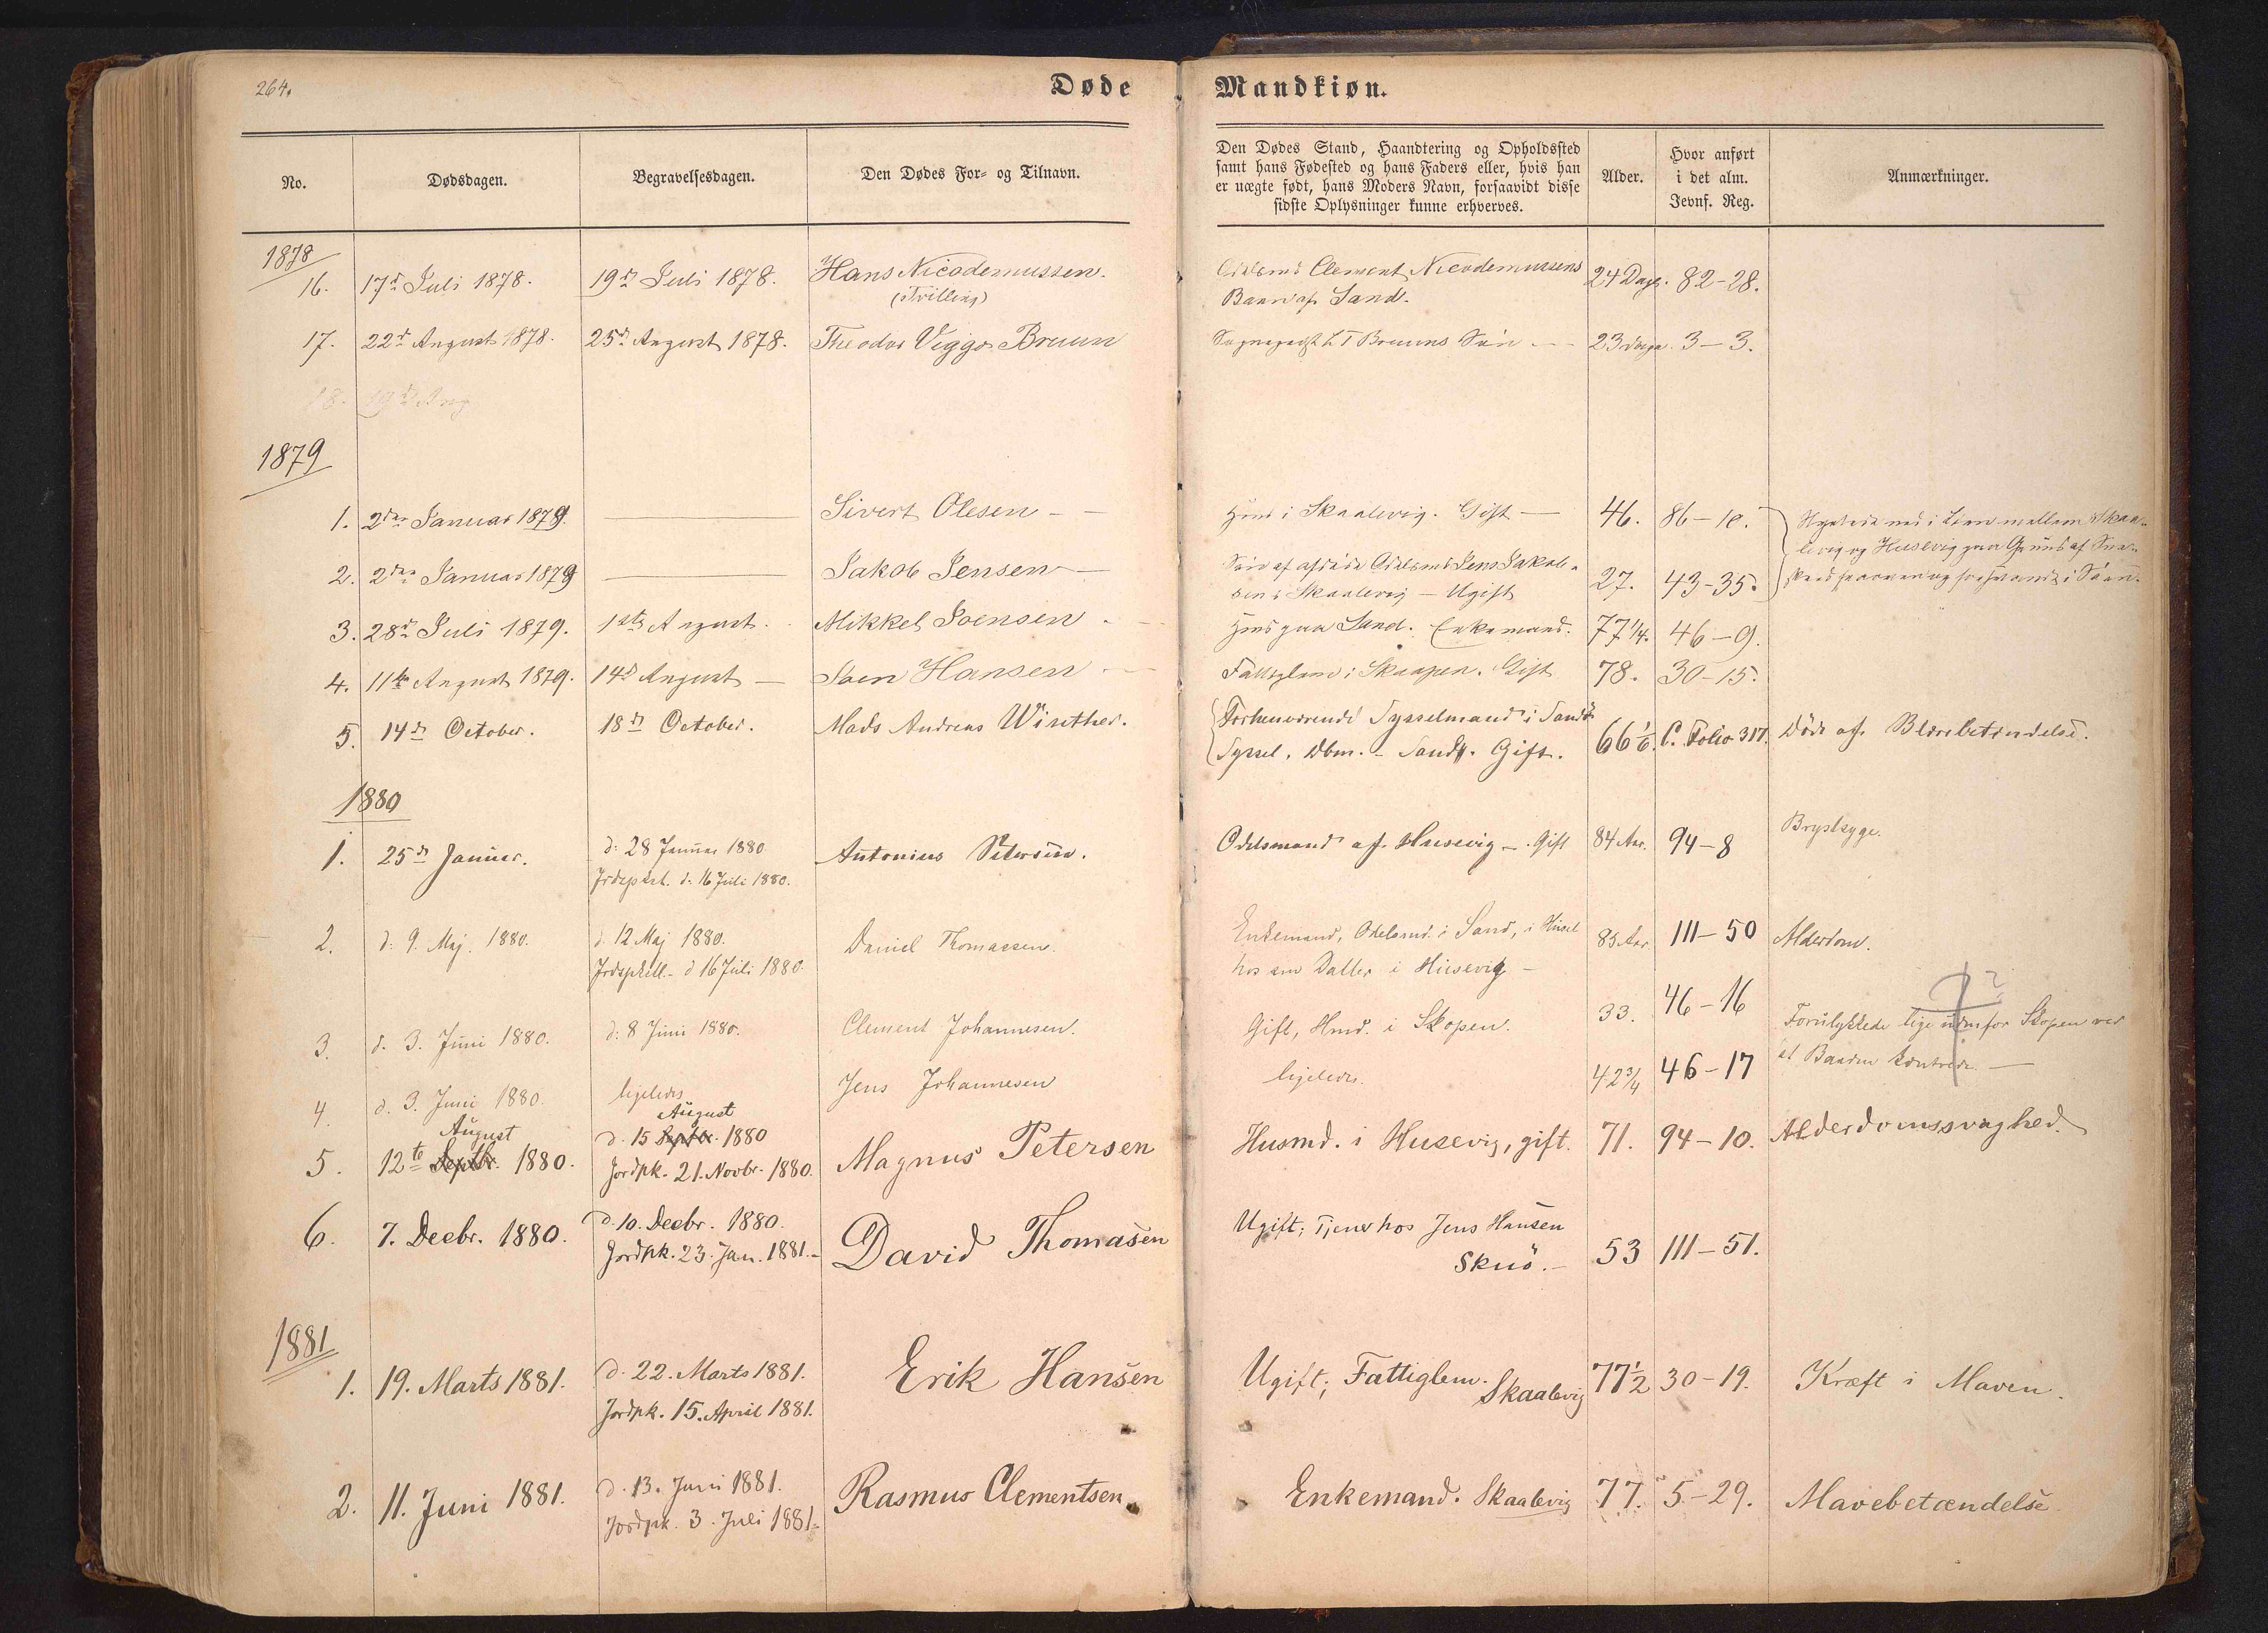 264.
Døde
Mandkiøn.
No.
Dødsdagen.
Begravelsesdagen.
Den Dødes For- og Tilnavn.
Den Dødes Stand, Haandtering og Opholdssted
samt hans Fødested og hans Faders eller, hvis han
er uægte født, hans Moders Navn, forsaavidt disse
sidste Oplysninger kunne erhverves.
Alder.
Hvor anført
i det alm.
Jevnf. Reg.
Anmærkninger.
1878
16. 17d Juli 1878. 19d Juli 1878. Hans Nicodemussen. Clement Nicodemussens 24 Dage. 82-28.
(Tvilling) Barn af Sand.
17. 22d August 1878. 25d August 1878. Theodor Viggo Bruun Bruuns Søn 23 Dage. 3-3.
18. 19d Aug
1879
1. 2den Januar 1879. Sivert Olesen Hmd i Skaalevig. Gift 46. 86-10. ned i mellem Skaa-
levig og Husevig paa Grund af Snee-
2. 2den Januar 1879 Jakob Jensen Søn af afdøde Odelsmd Jens Jakob-
sen i Skaalevig - Ugift 27. 43-35.
3. 28d Juli 1879. 1ste August. Mikkel Joensen Hmd paa Sand. Enkemand. 77 1/4. 46-9.
4. 11te August 1879. 14d August Joen Hansen Fattiglem i Skaapen. Gift 78. 30-15.
5. 14d October. 18d October. Mads Andreas Winther. Forhenværende Sysselmand i Sandø
Syssel. Dbm. - Sand. Gift. 66 1/6. C. Folio 317. Døde af Blærebetændelse.
1880
1. 25d Januar. d. 28 Januar 1880. Antonius Petersen. Odelsmand af Husevig - Gift 84 Aar. 94-8 Brystsyge.
Jrdspkst. d. 16 Juli 1880.
2. d. 9. Maj. 1880. d. 12 Maj 1880. Daniel Thomassen. Enkemand, Odelsmd. i Sand, i Husel 85 Aar. 111-50 Alderdom.
d 16 Juli 1880. hos sin Datter i Husevig -
3. d. 3. Juni 1880. d. 8 Juni 1880. Clement Johannesen. Gift, Hmd. i Skopen. 33. 46-16 Forulykkede lige udenfor Skopen ved
?
4. d. 3. Juni 1880. ligeledes Jens Johannesen ligeledes. 42 3/4 46-17 at Baaden kæntrede. -
August August
5. 12te Septbr. 1880. d. 15 Septbr. 1880 Magnus Petersen Husmd. i Husevig, gift. 71. 94-10. Alderdomssvaghed.
Jordpk. 21. Novbr. 1880.
6. 7. Decbr. 1880. d. 10. Decbr. 1880. David Thomasen Ugift; Tjener hos Jens Hansen
Jordpk. 23. Jan. 1881.- Skuö.- 53 111-51.
1881
1. 19. Marts 1881. d. 22. Marts 1881. Erik Hansen Ugift; Fattiglem. Skaalevig 77 1/2 30-19. Kræft i Maven.
Jordpk. 15. April 1881.
2. 11. Juni 1881. d. 13. Juni 1881. Rasmus Clementsen. Enkemand. Skaalevig 77. 5-29. Mavebetændelse.
Jordpk. 3. Juli 1881.-